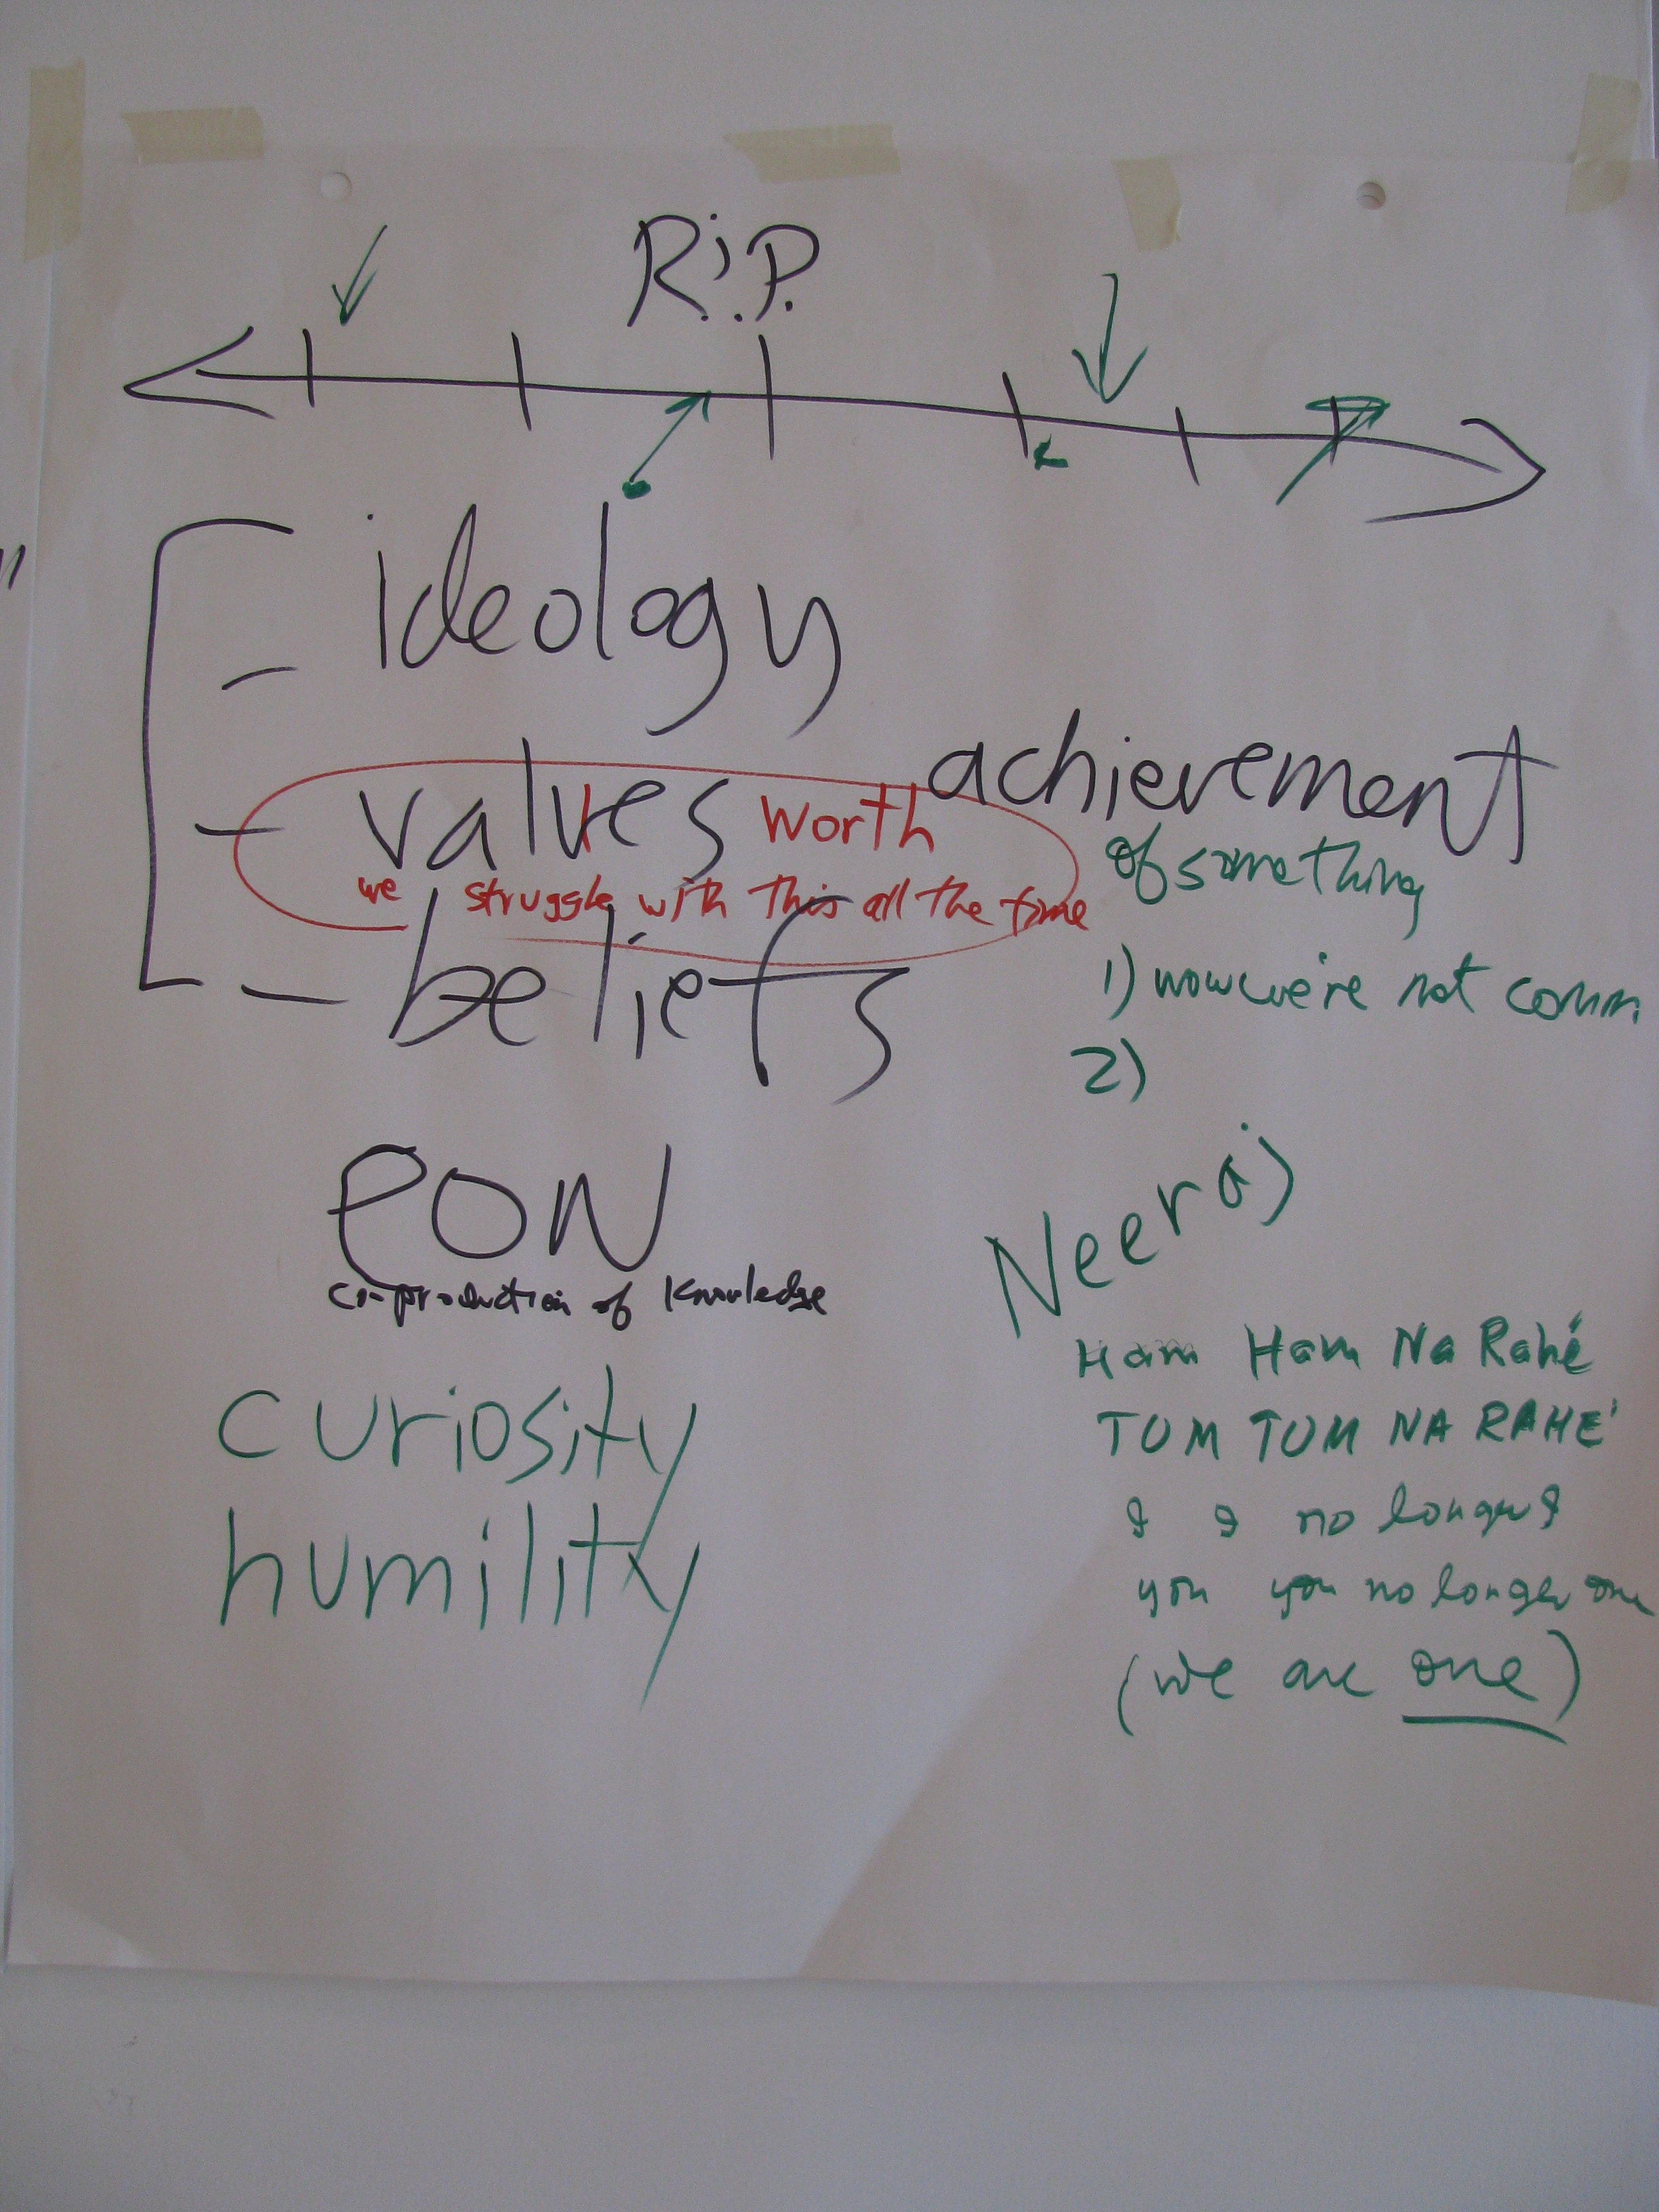 R.i.P.
ideology
values worth achievement
we struggle with this all the time
of something
beliefs
1) wow we're not comm.
2)
PON
co-production of knowledge
Neeraj
Ham Ham Na Rahé
TUM TUM NA RAHE'
curiosity
humility
I I no longer I
you you no longer one
(we are one)